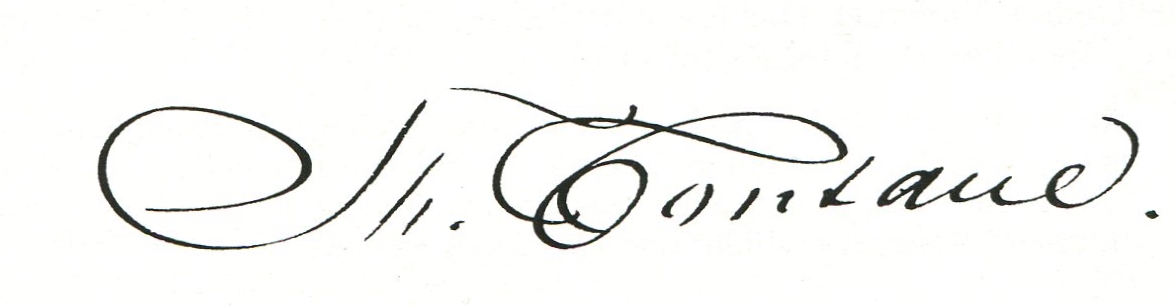 Th. Fontane.